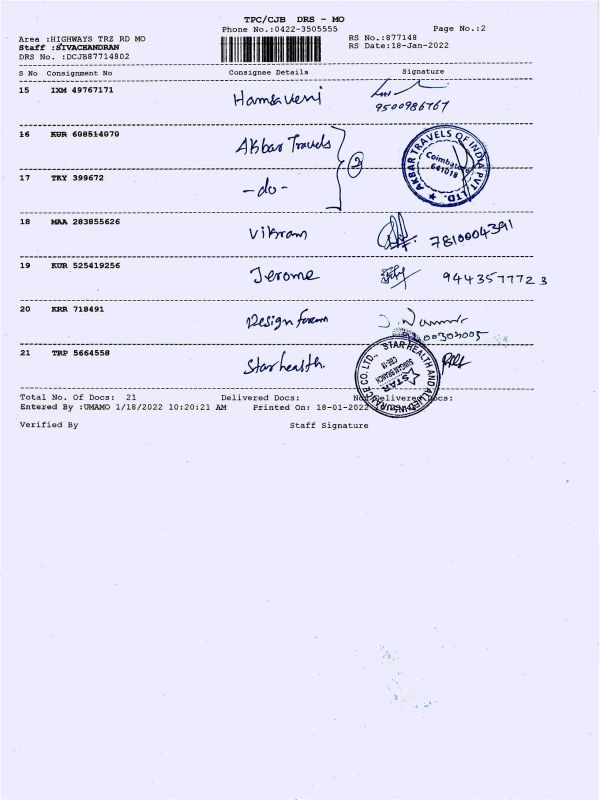 TPC/CJB DRS - MO
Phone No.:0422-3505555
Page No.:2
Area :HIGHWAYS TRZ RD MO
RS No.:877148
Staff :SIVACHANDRAN
RS Date:18-Jan-2022
DRS No. :DCJB87714802
S No Consignment No Consignee Details Signature
15 IXM 49767171 Hamsaveni
9500986767
16 KUR 608514070 Akbar Travels
2
AKBAR TRAVELS OF INDIA PVT. LTD.
Coimbatore
641018
17 TKY 399672 -do-
18 MAA 283855626 Vikram 7810004391
19 KUR 525419256 Jerome 9443577723
20 KRR 718491 Design forum
21 TRP 5664558 Star health.
STAR HEALTH AND ALLIED INSURANCE CO. LTD.,
STAR
Total No. Of Docs: 21 Delivered Docs:
Entered By :UMAMO 1/18/2022 10:20:21 AM Printed On: 18-01-2022
Verified By Staff Signature